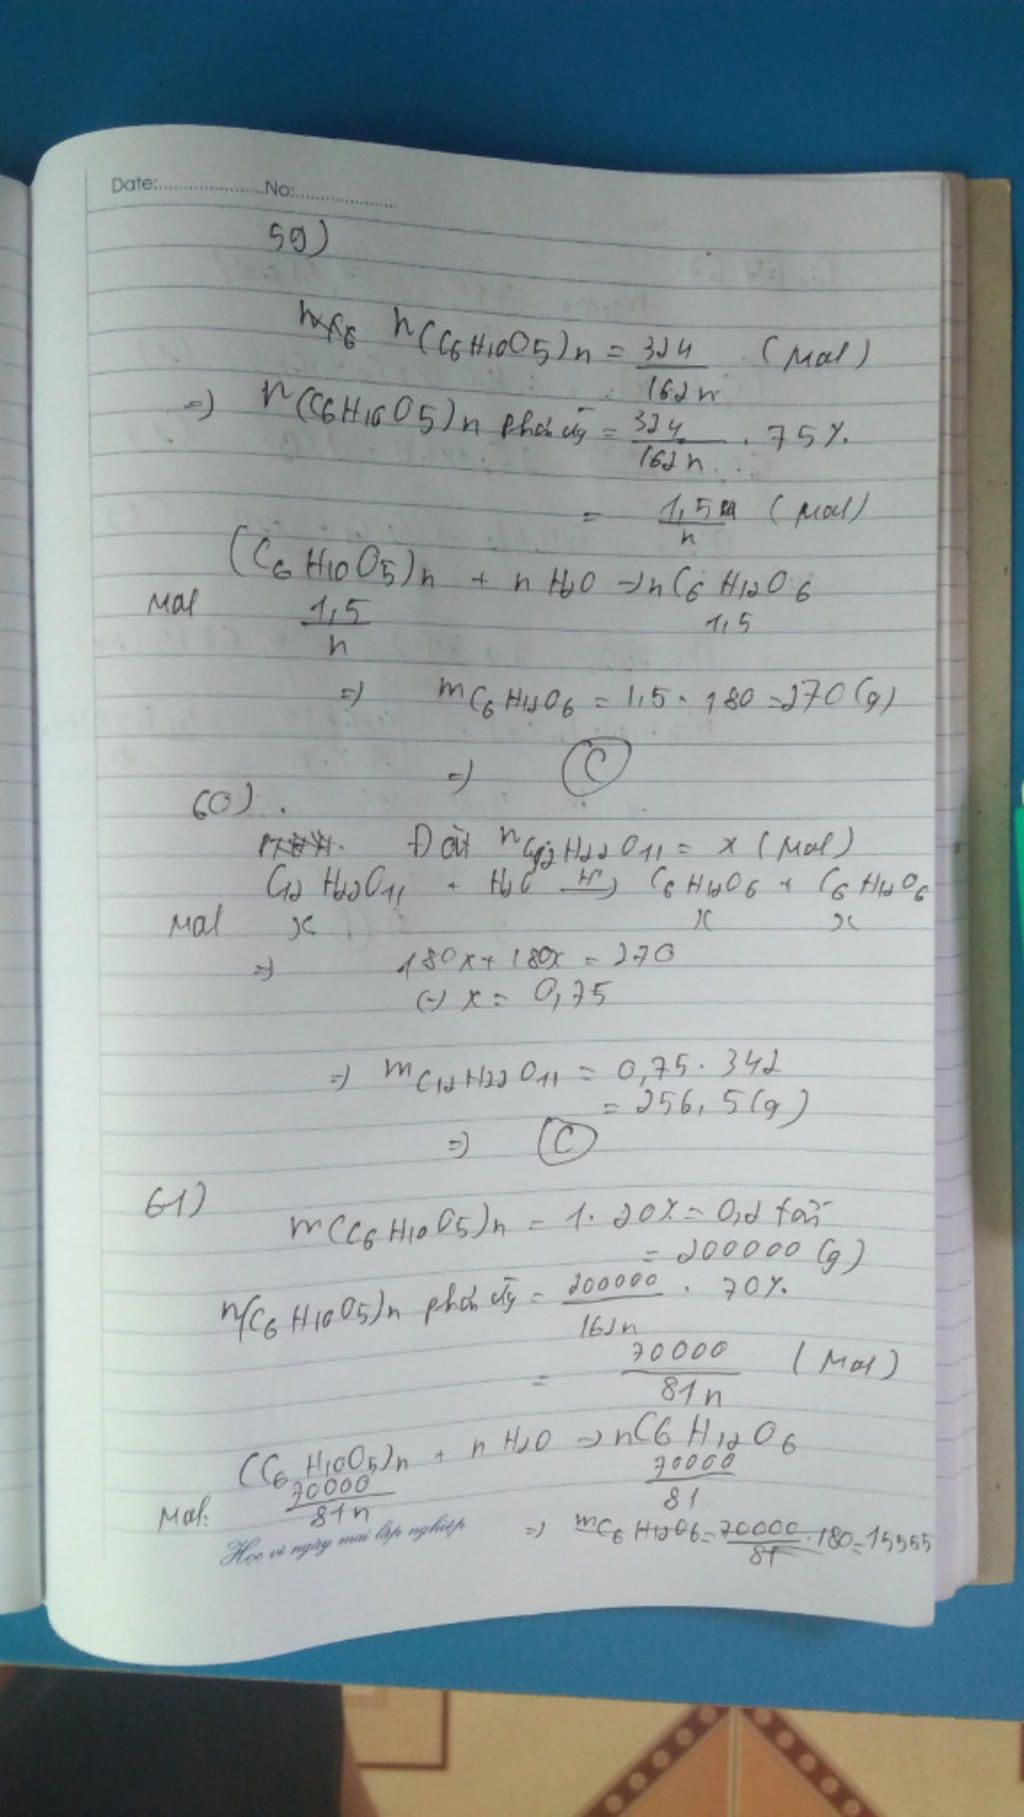 Date:......................No:.....................
59)
n(C6H10O5)n = 324/162n (mol)
=) n(C6H10O5)n phản ứng = 324/162n . 75%
= 1,5/n (mol)
(C6H10O5)n + nH2O -> nC6H12O6
mol 1,5/n 1,5
=) mC6H12O6 = 1,5 . 180 = 270(g)
=) C
60).
Đặt nC12H22O11 = x (mol)
C12H22O11 + H2O H+ -> C6H12O6 + C6H12O6
mol x x x
=) 180x + 180x = 270
(-) x = 0,75
=) mC12H22O11 = 0,75 . 342
= 256,5(g)
=) C
61)
m(C6H10O5)n = 1. 20% = 0,2 tấn
= 200000 (g)
n(C6H10O5)n phản ứng = 200000/162n . 70%
= 70000/81n (mol)
(C6H10O5)n + nH2O -> nC6H12O6
mol: 70000/81n 70000/81
Học vì ngày mai lập nghiệp
=) mC6H12O6 = 70000/81 . 180 = 15555